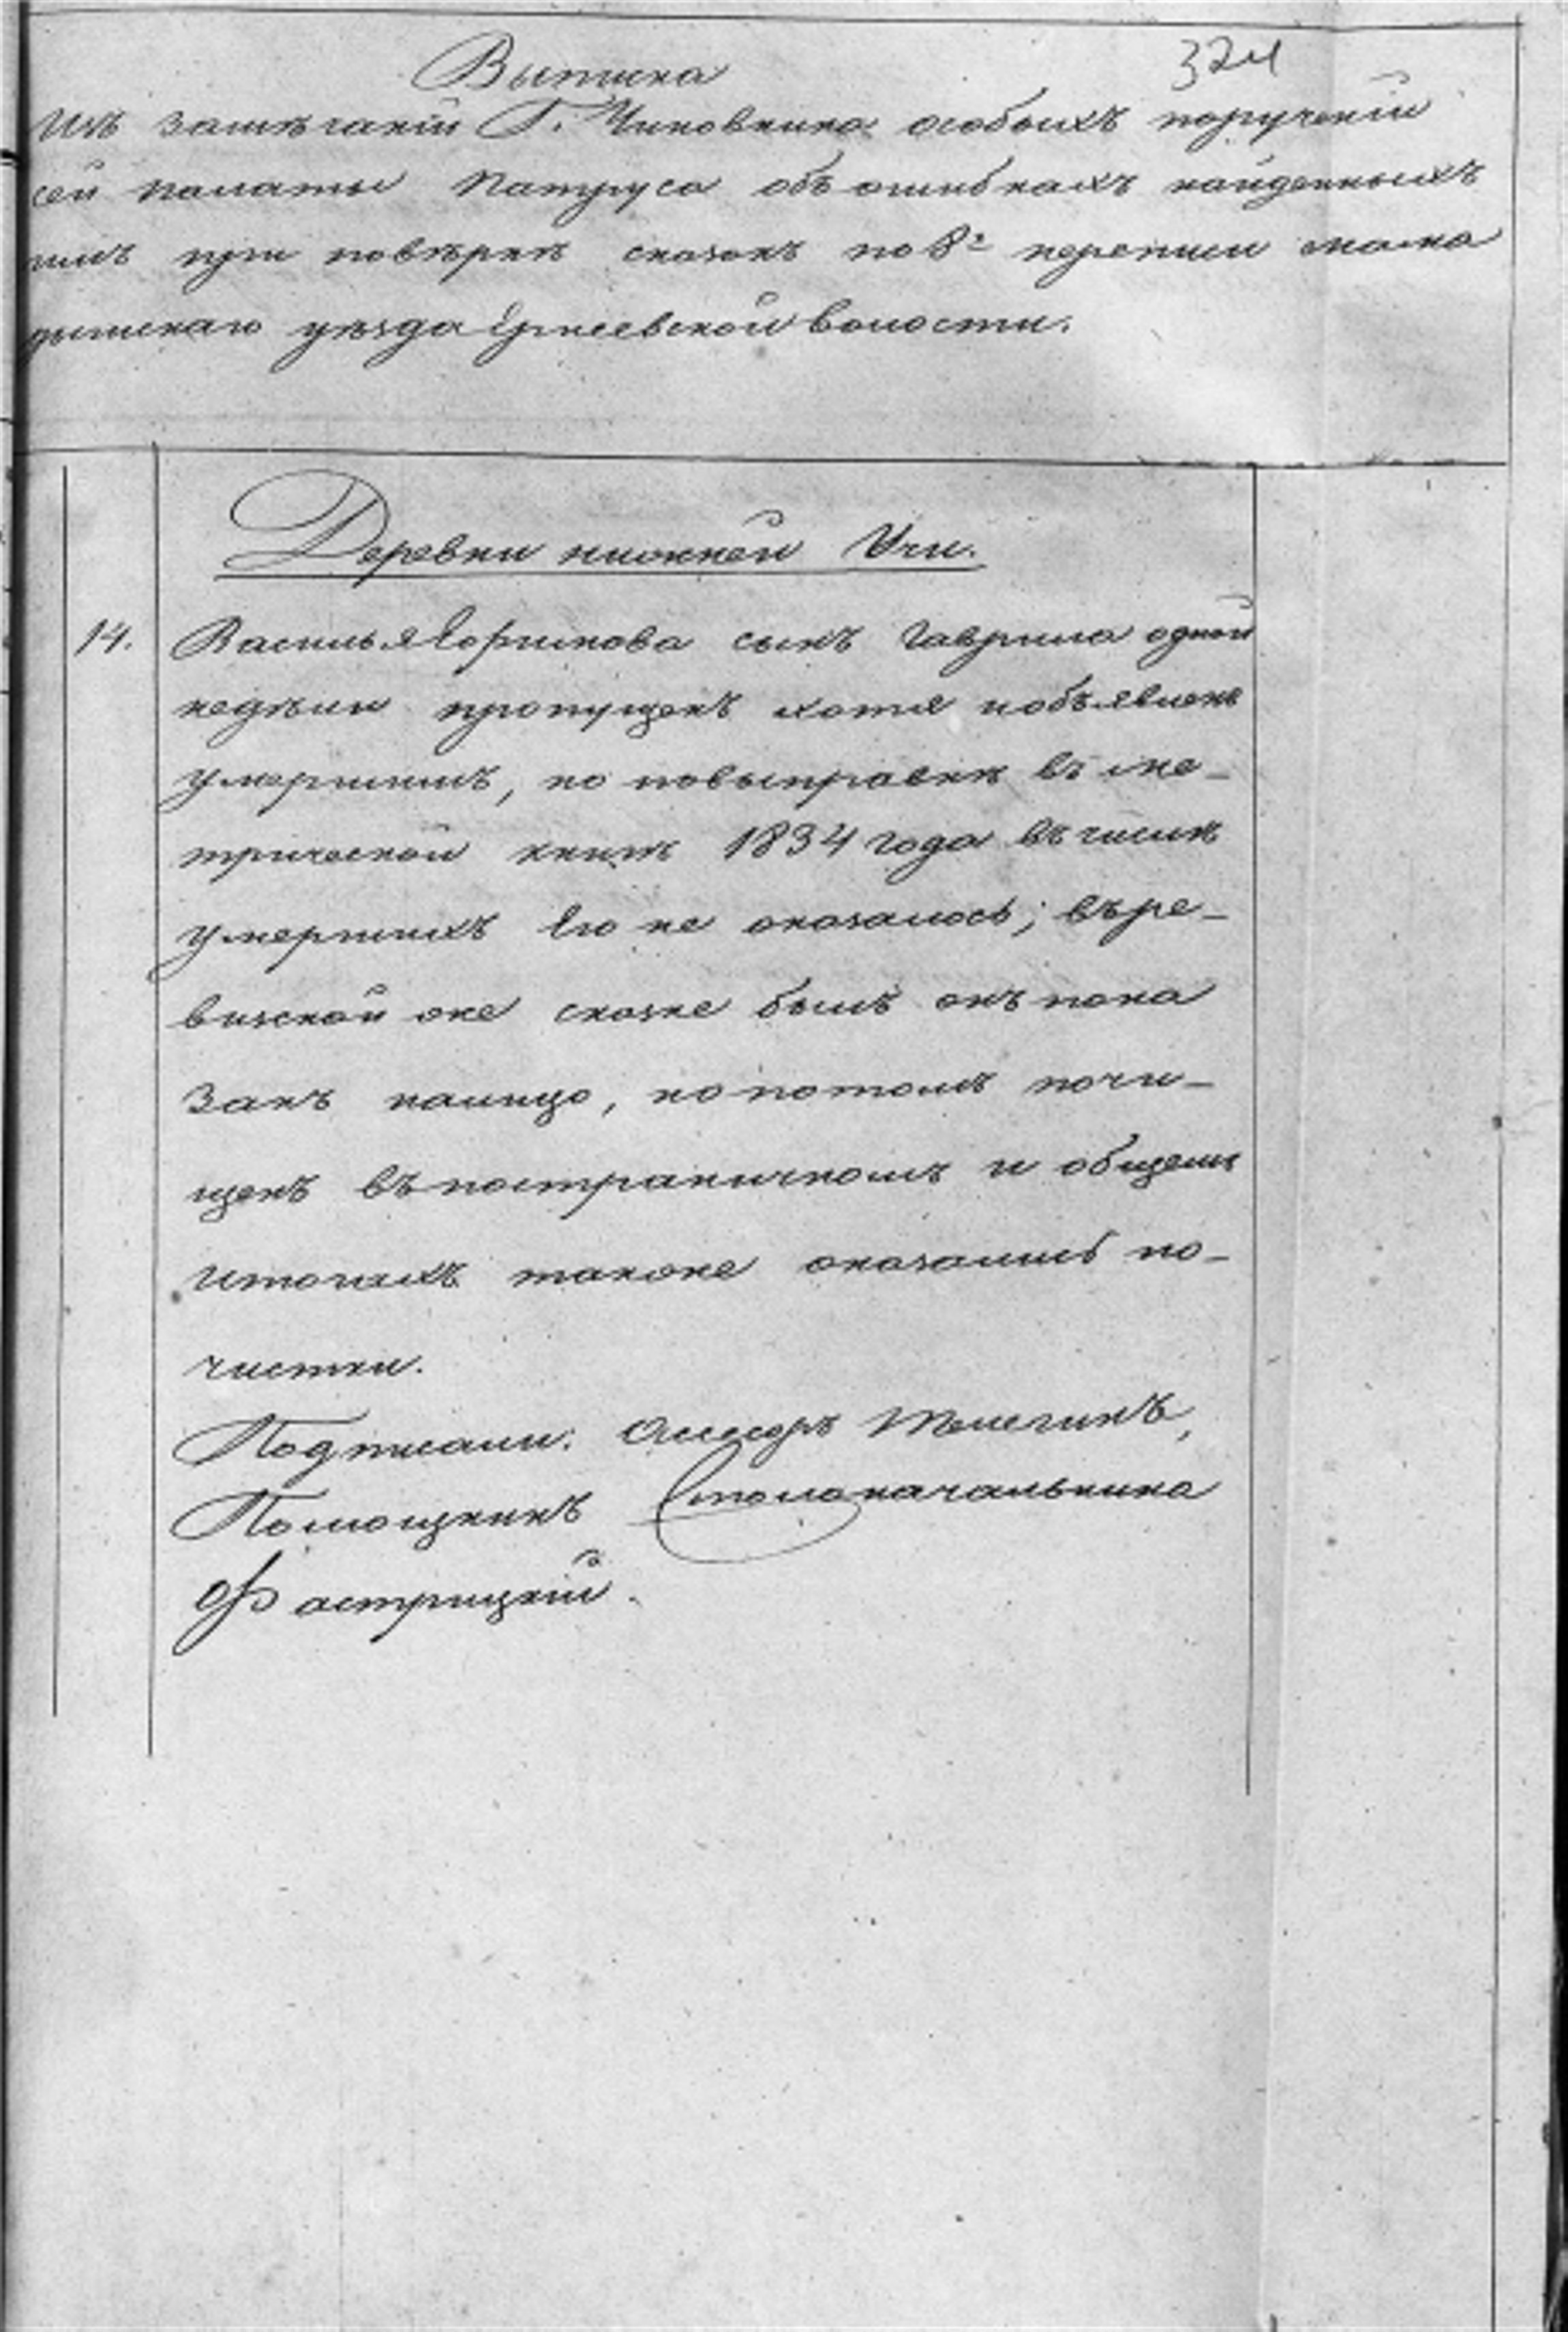 Выписка
324
Изъ замѣчаній Г. Чиновника особыхъ порученій
сей палаты Патруса объ ошибкахъ найденныхъ
имъ при повѣркѣ сказокъ по 8й переписи мама
дышскаго уѣзда Ермеевской волости.
Деревни нижней Учи.
14. Василья Ефимова сынъ Гаврила одной
недѣли пропущенъ хотя и объявленъ
умершимъ, но по выправкѣ въ ме-
трической книгѣ 1834 года въ числѣ
умершихъ Его не оказалось; въ ре-
визской же сказке былъ онъ пока
занъ налицо, но потомъ почи-
щенъ въ постраничномъ и общемъ
итогахъ также оказались по-
чистки.
Подписали: Асесоръ Телегинъ,
Помощникъ Столоначальника
Фастрицкій.